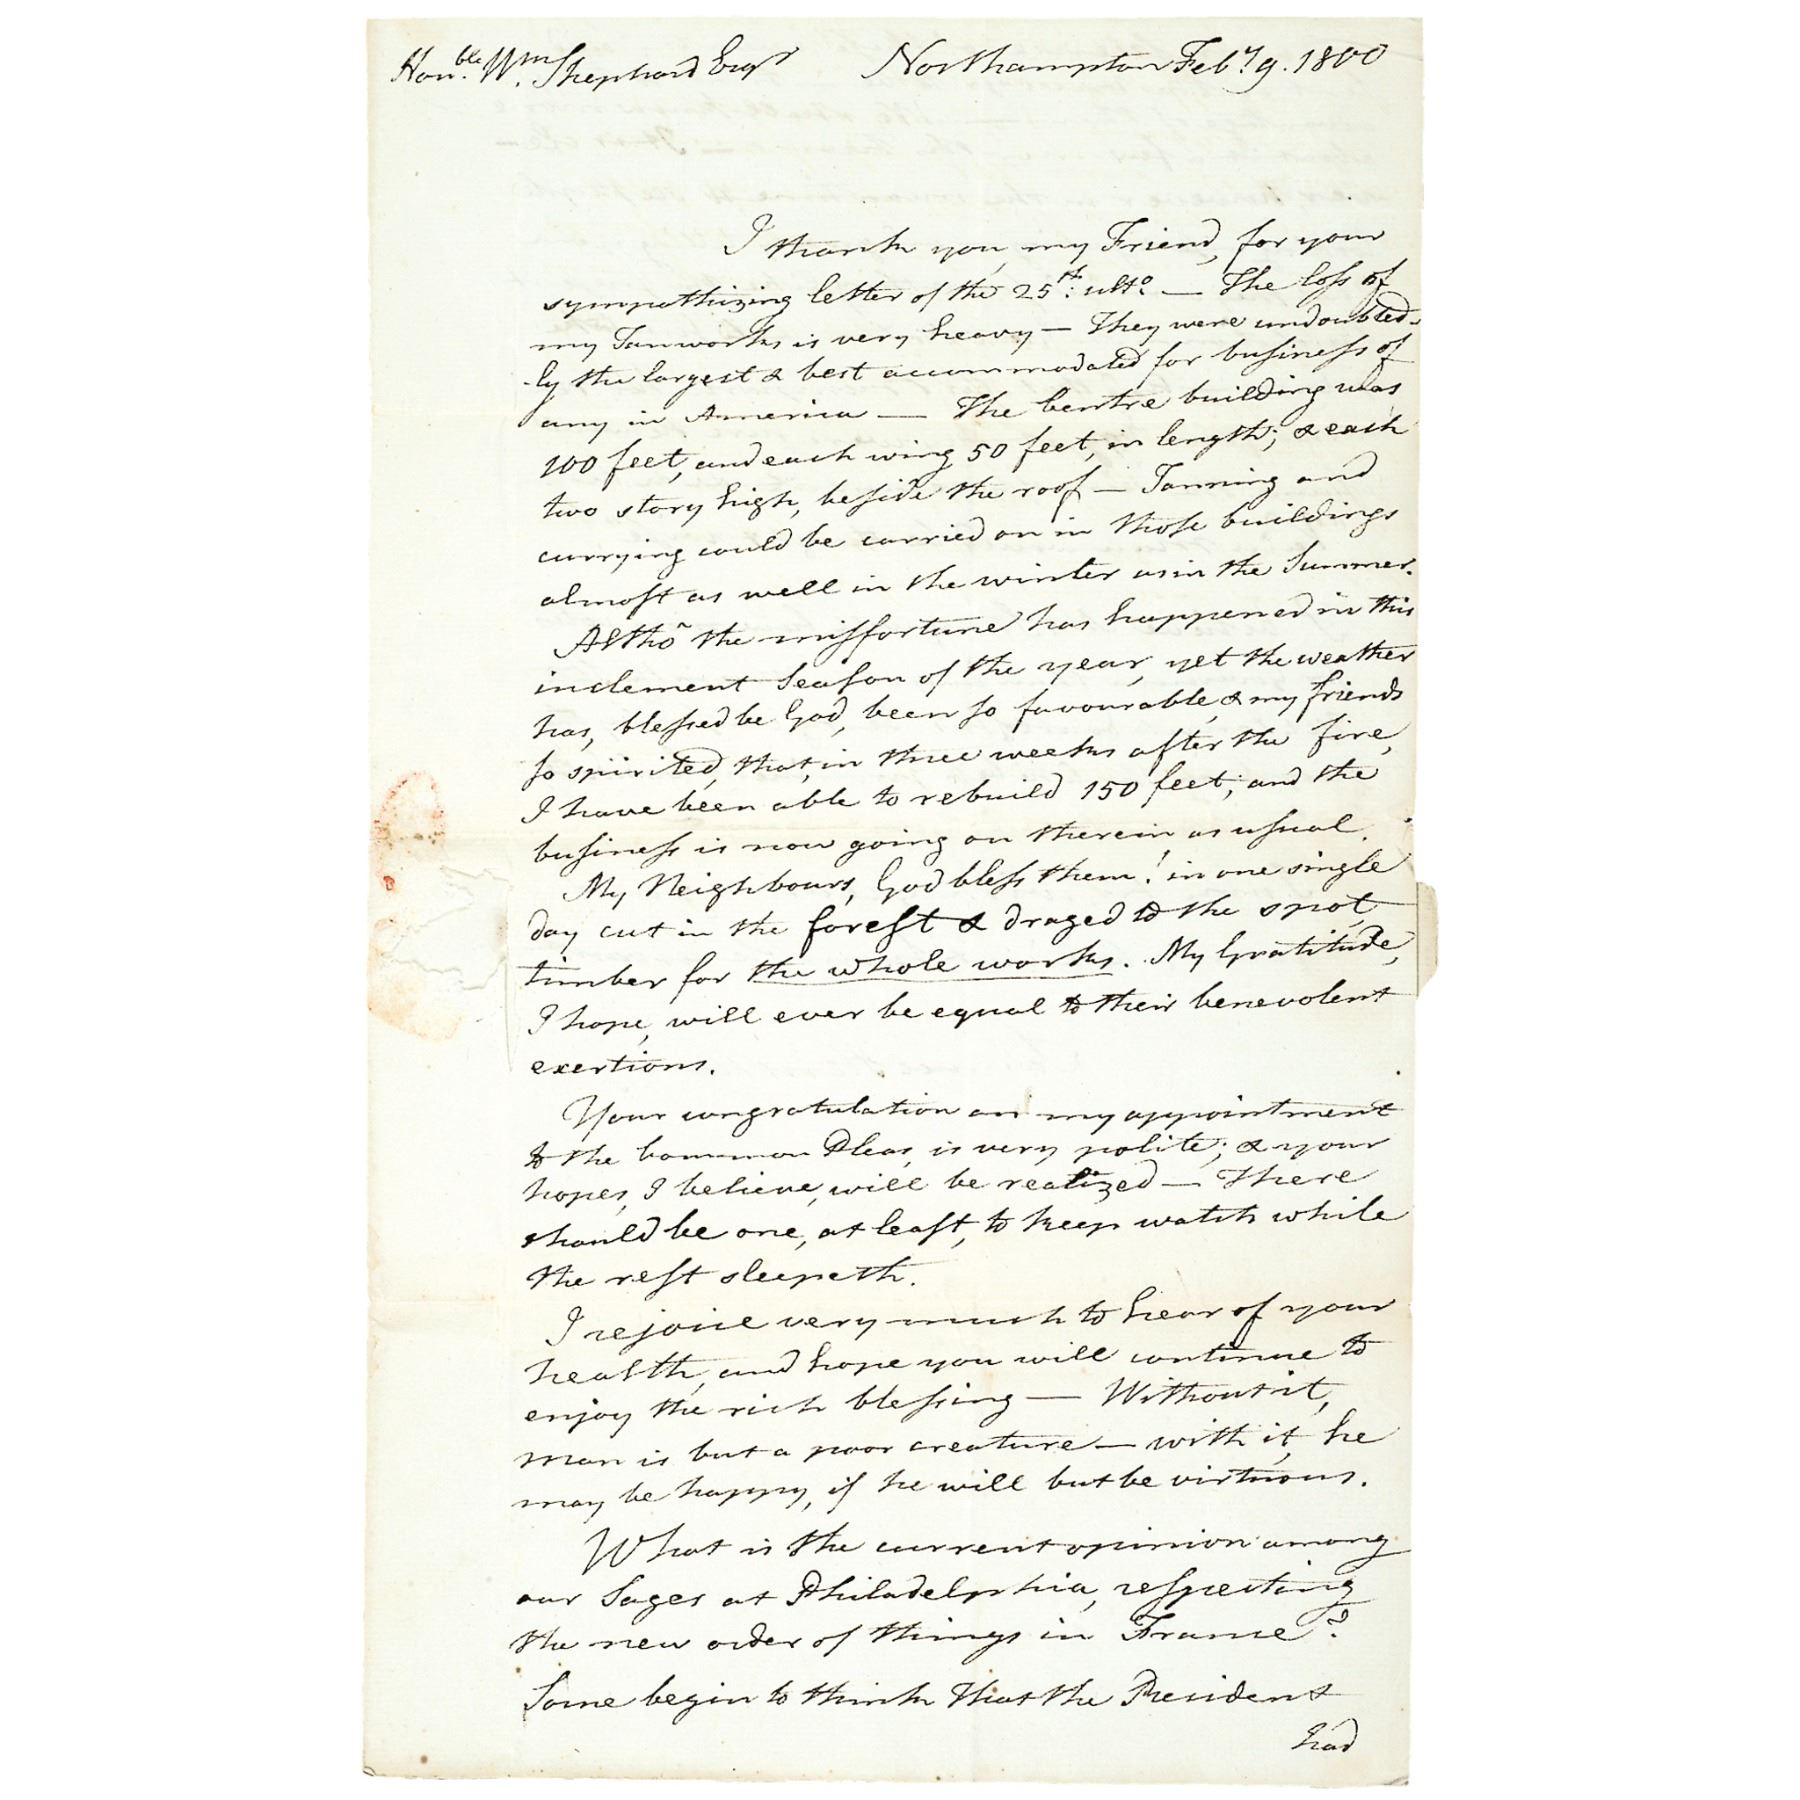 Hon.ble Wm. Shephard Esqr Northampton Feby. 9. 1800
I thank you, my Friend, for your
sympathizing letter of the 25th: ulto. — The loss of
my Tanworks is very heavy — They were undoubted-
-ly the largest & best accommodated for business of
any in America — The Centre building was
100 feet, and each wing 50 feet, in length; & each
two story high, beside the roof — Tanning and
currying could be carried on in those buildings
almost as well in the winter as in the Summer.
Altho the missfortune has happened in this
inclement Season of the year, yet the weather
has, blessed be God, been so favourable, & my friends
so spirited, that, in three weeks after the fire,
I have been able to rebuild 150 feet; and the
business is now going on therein as usual.
My Neighbours, God bless them! in one single
day cut in the forest & draged to the spot,
timber for the whole works. My Gratitude,
I hope, will ever be equal to their benevolent
exertions.
Your congratulation on my appointment
to the Common Pleas, is very polite; & your
hopes, I believe, will be realized — There
should be one, at least, to keep watch while
the rest sleepeth.
I rejoice very much to hear of your
health, and hope you will continue to
enjoy the rich blessing — Without it,
man is but a poor creature — with it, he
may be happy, if he will but be virtuous.
What is the current opinion among
our Sages at Philadelphia, respecting
the new order of things in France?
Some begin to think that the President
had